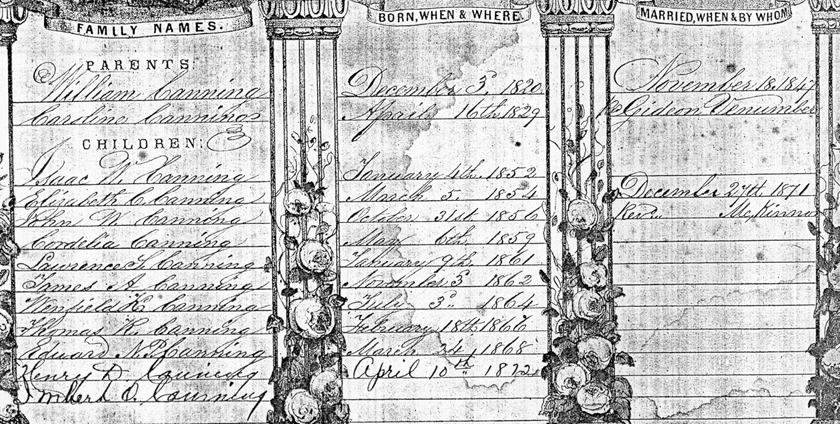 FAMILY NAMES.
BORN, WHEN & WHERE.
MARRIED, WHEN & BY WHOM
PARENTS
William Canning December 3d 1820 November 18, 1847
Caroline Canning April 16th 1829 Gideon
CHILDREN:
Isaac W. Canning January 4th 1852
Elizabeth C. Canning March 5, 1854 December 27th 1871
John W. Canning October 31st 1856 McKinno
Cordelia Canning May 6th, 1859
Lawrence S. Canning January 9th, 1861
James A. Canning November 3d 1862
Winfield Canning July 3d 1864
Thomas Canning February 18th 1866
Edward N.P. Canning March 24, 1868
Henry D Canning April 10th
Canning